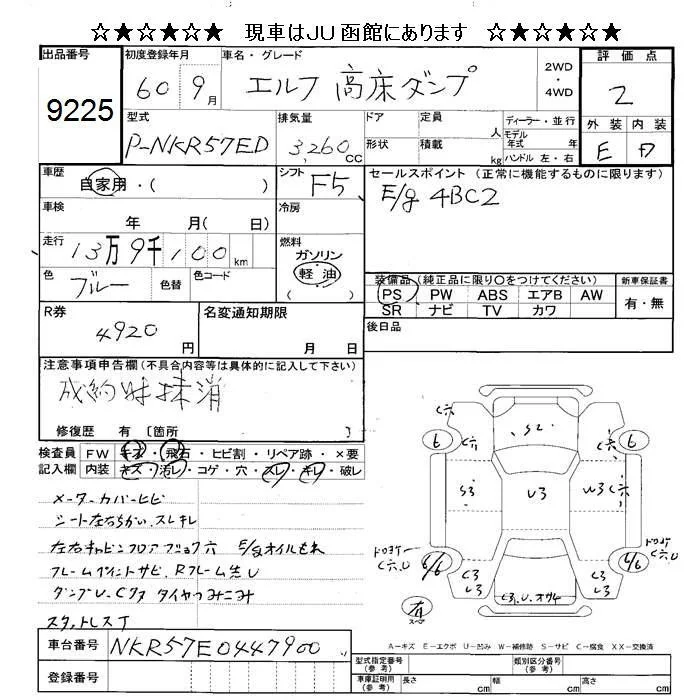 ☆★☆★☆★ 現車はJU函館にあります ☆★☆★☆★
出品番号 9225
初度登録年月 60 9月
車名・グレード エルフ 高床ダンプ
2WD・4WD
評価点 2
外装 内装
E D
型式 P-NKR57ED
排気量 3,260 CC
ドア 定員 人
形状 積載 kg
ディーラー・並行
モデル年式 年
ハンドル 左・右
車歴 自家用・( )
シフト F5
セールスポイント (正常に機能するものに限ります)
E/g 4BC2
車検 年 月( 日)
冷房
走行 13万9千100km
燃料 ガソリン 軽油 ( )
色 ブルー 色替 色コード
装備品 (純正品に限り〇をつけてください)
新車保証書
PS PW ABS エアB AW
SR ナビ TV カワ
有・無
R券 4920円
名変通知期限 月 日
後日品
注意事項申告欄(不具合内容等は具体的に記入して下さい)
成約時抹消
修復歴 有 〔箇所 〕
検査員記入欄
FW キズ・飛石・ヒビ割・リペア跡・×要
内装 キズ・汚レ・コゲ・穴・スレ・キレ・破レ
メーターカバーヒビ
シート左右ちがい、スレキレ
左右キャビンフロアフショク穴 E/gオイルもれ
フレームプイントサビ、Rフレーム先U
ダンプU、Cクタ タイヤつみこみ
スタットレスT
C穴
6 C穴 S2 C穴 6
S3 U3 W3 C穴
ドロヨケC穴、U 6/6
ドロヨケC穴、U 4/6
C3 U3
C3 U3
C3、U、オサレ
有 スペア
A-キズ E-エクボ U-凹み W-補修跡 S-サビ C-腐食 XX-交換済
車台番号 NKR57E0447900
登録番号
型式指定番号(参考)
類別区分番号(参考)
車庫証明(参考) 長さ cm 幅 cm 高さ cm